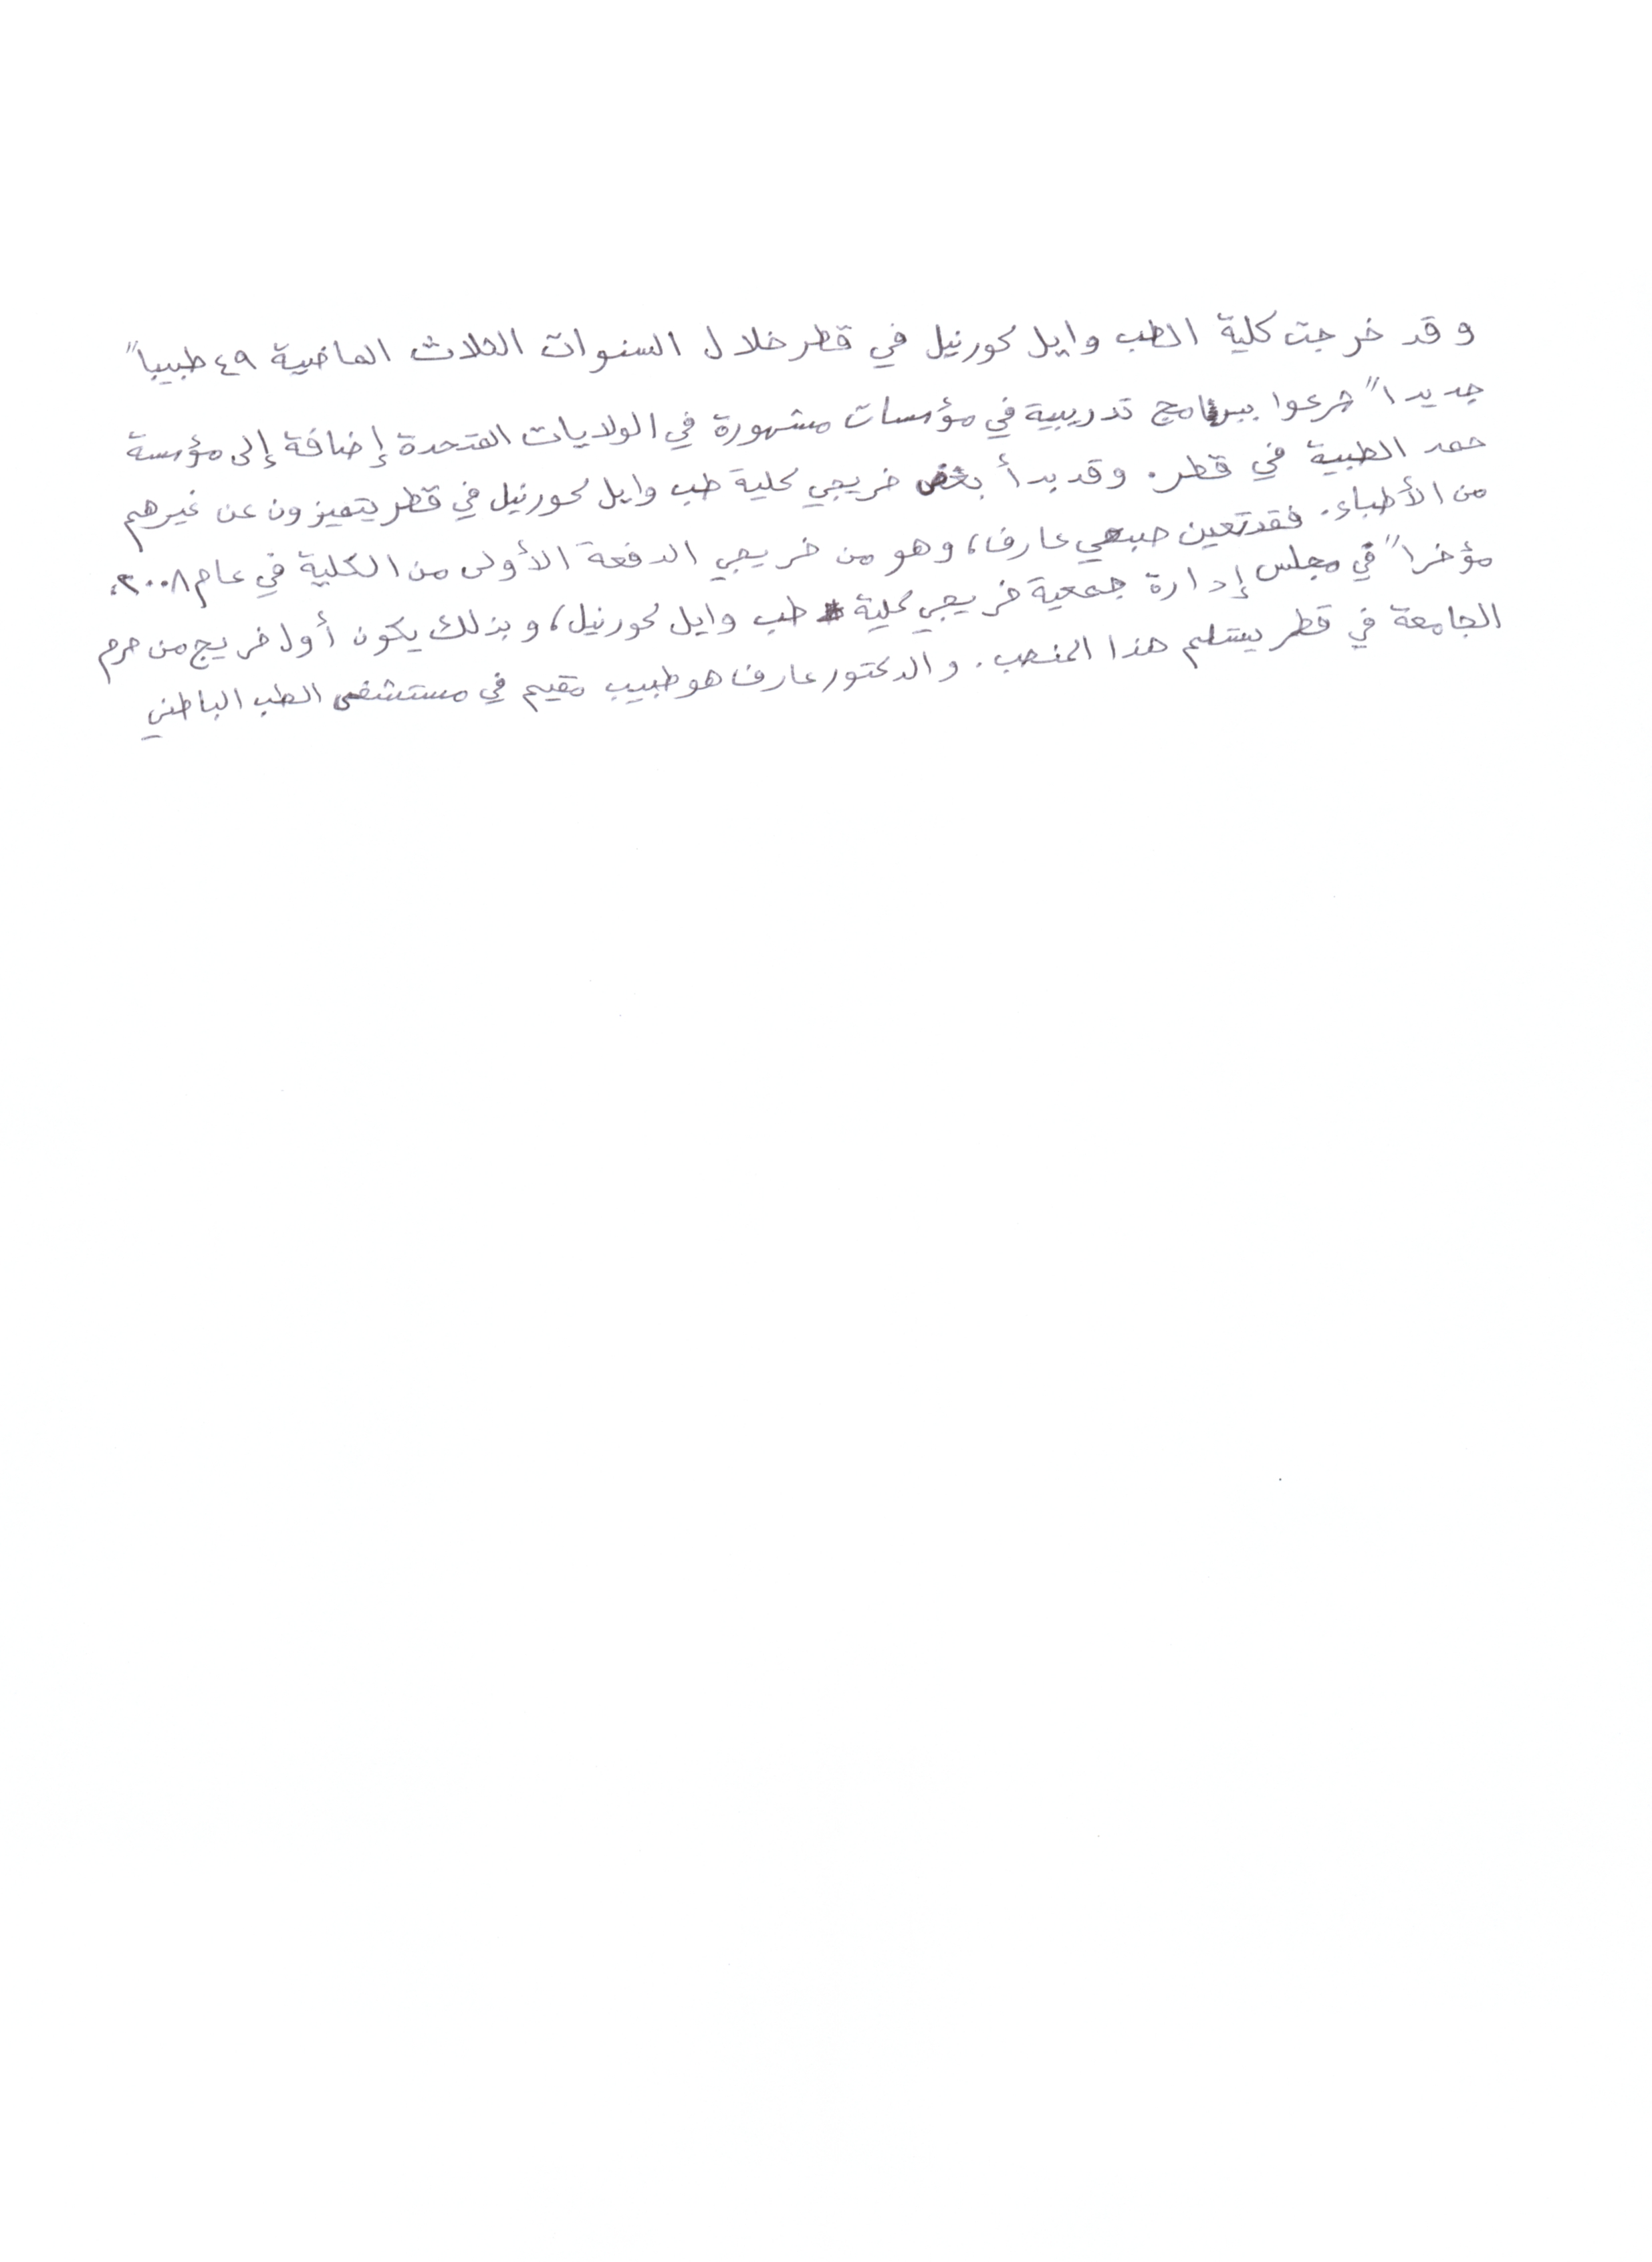 وقد خرجت كلية الطب وايل كورنيل في قطر خلال السنوات الثلاث الماضية ٤٩ طبيباً
جديداً شرعوا ببرنامج تدريبية في مؤسسات مشهورة في الولايات المتحدة إضافة إلى مؤسسة
حمد الطبية في قطر. وقد بدأ بعض خريجي كلية طب وايل كورنيل في قطر يتميزون عن غيرهم
من الأطباء. فقد تعين صبحي عارف، وهو من خريجي الدفعة الأولى من الكلية في عام ٢٠٠٨،
مؤخراً في مجلس إدارة جمعية خريجي كلية طب وايل كورنيل، وبذلك يكون أول خريج من حرم
الجامعة في قطر يستلم هذا المنصب. والدكتور عارف هو طبيب مقيم في مستشفى الطب الباطني